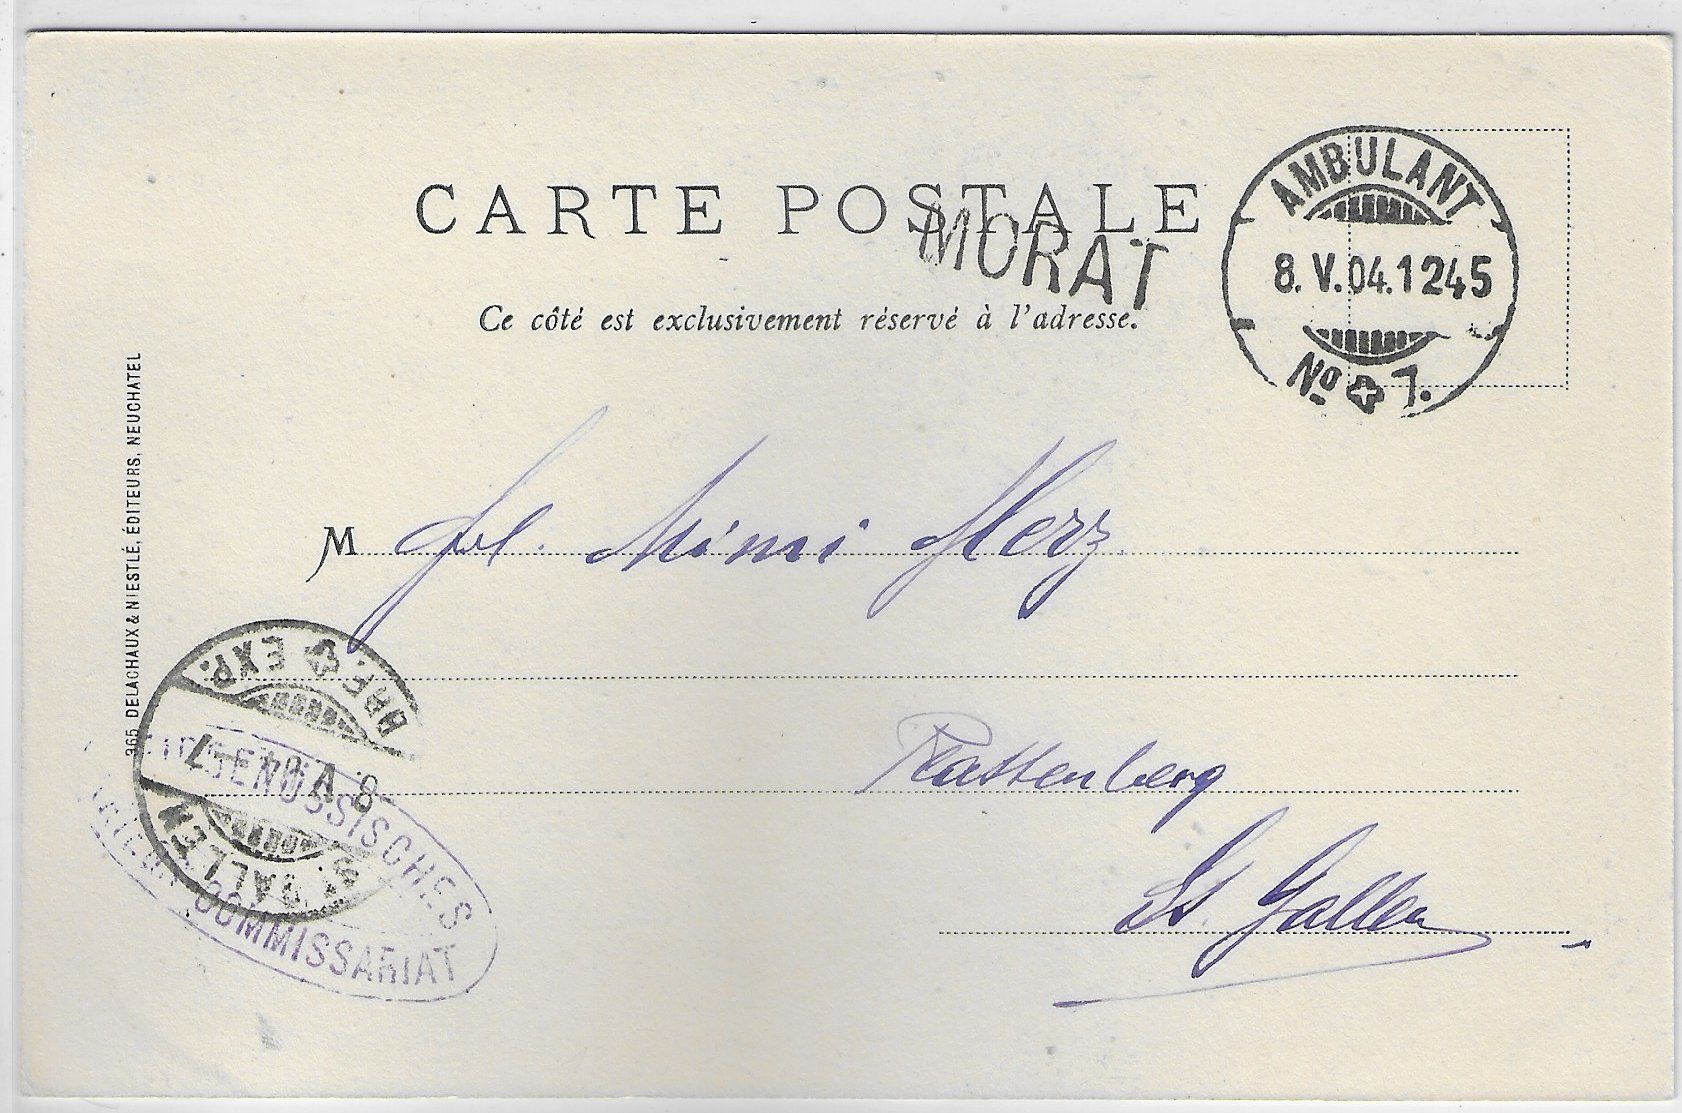 CARTE POSTALE
MORAT
Ce côté est exclusivement réservé à l'adresse.
AMBULANT
8. V. 04. 1245
No 7.
365 DELACHAUX & NIESTLÉ, ÉDITEURS, NEUCHATEL
M Frl. Mimi Merz
Rattenberg
St. Gallen
BRF. EXP.
8 V 04 - 7
ST. GALLEN
EIDGENÖSSISCHES
COMMISSARIAT